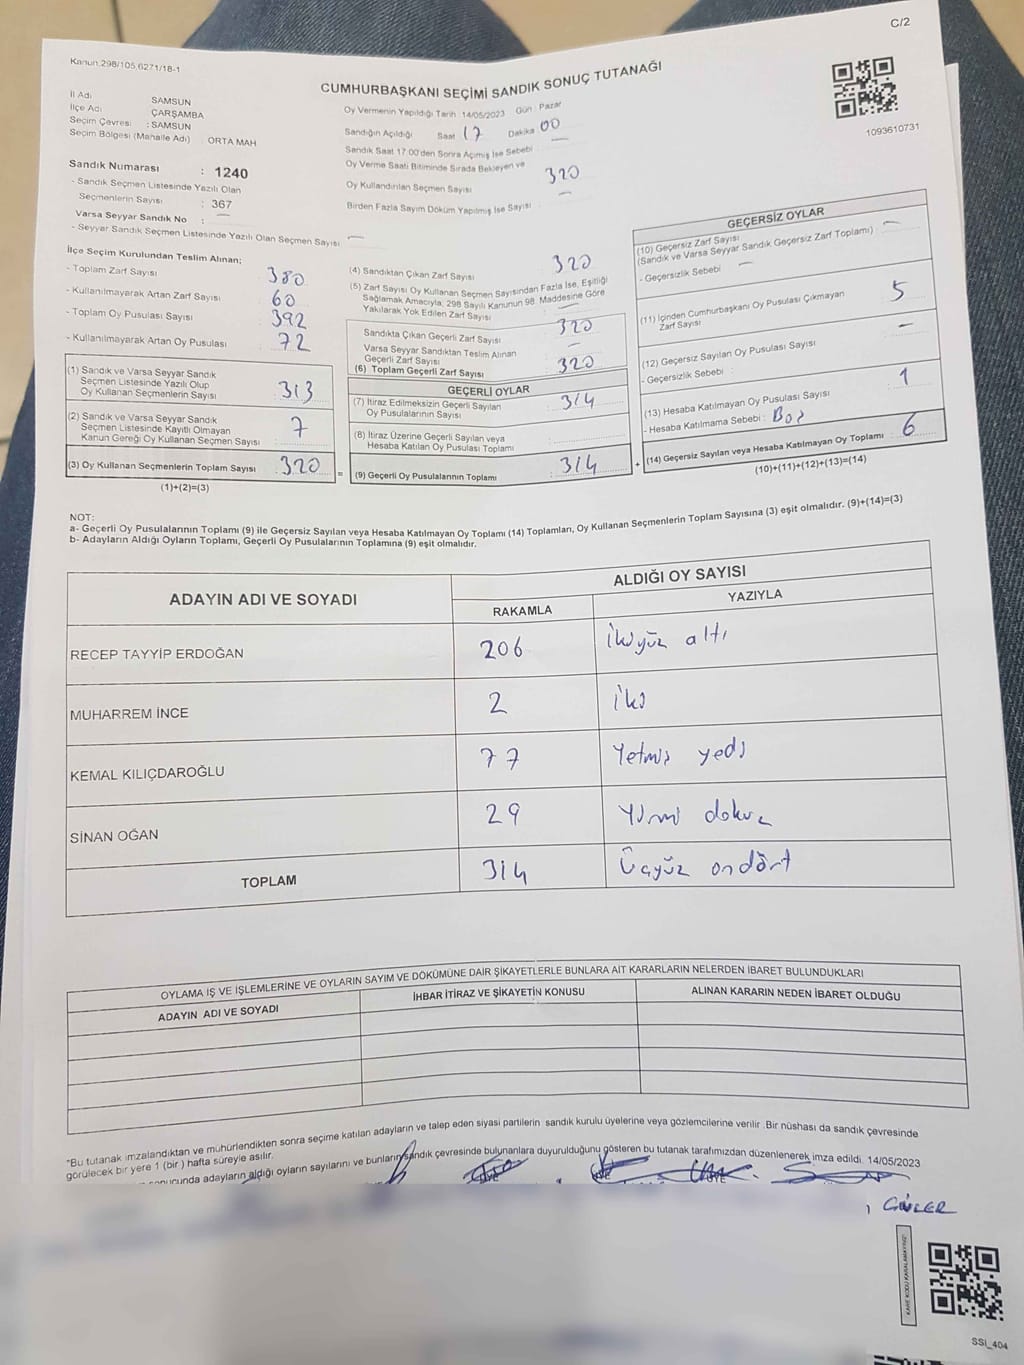 C/2
Kanun:298/105,6271/18-1
CUMHURBAŞKANI SEÇİMİ SANDIK SONUÇ TUTANAĞI
1093610731
İl Adı SAMSUN
İlçe Adı ÇARŞAMBA
Seçim Çevresi : SAMSUN
Seçim Bölgesi (Mahalle Adı) ORTA MAH
Sandık Numarası : 1240
- Sandık Seçmen Listesinde Yazılı Olan
Seçmenlerin Sayısı : 367
Varsa Seyyar Sandık No : —
- Seyyar Sandık Seçmen Listesinde Yazılı Olan Seçmen Sayısı —
Oy Vermenin Yapıldığı Tarih :14/05/2023 Gün : Pazar
Sandığın Açıldığı Saat 17 Dakika 00
Sandık Saat 17:00'den Sonra Açılmış İse Sebebi —
Oy Verme Saati Bitiminde Sırada Bekleyen ve
Oy Kullandırılan Seçmen Sayısı 320
Birden Fazla Sayım Döküm Yapılmış İse Sayısı —
İlçe Seçim Kurulundan Teslim Alınan;
- Toplam Zarf Sayısı 380
- Kullanılmayarak Artan Zarf Sayısı 60
- Toplam Oy Pusulası Sayısı 392
- Kullanılmayarak Artan Oy Pusulası 72
(1) Sandık ve Varsa Seyyar Sandık
Seçmen Listesinde Yazılı Olup
Oy Kullanan Seçmenlerin Sayısı 313
(2) Sandık ve Varsa Seyyar Sandık
Seçmen Listesinde Kayıtlı Olmayan
Kanun Gereği Oy Kullanan Seçmen Sayısı 7
(3) Oy Kullanan Seçmenlerin Toplam Sayısı 320
(1)+(2)=(3)
(4) Sandıktan Çıkan Zarf Sayısı 320
(5) Zarf Sayısı Oy Kullanan Seçmen Sayısından Fazla İse, Eşitliği
Sağlamak Amacıyla, 298 Sayılı Kanunun 98. Maddesine Göre
Yakılarak Yok Edilen Zarf Sayısı —
Sandıkta Çıkan Geçerli Zarf Sayısı 320
Varsa Seyyar Sandıktan Teslim Alınan
Geçerli Zarf Sayısı —
(6) Toplam Geçerli Zarf Sayısı 320
GEÇERLİ OYLAR
(7) İtiraz Edilmeksizin Geçerli Sayılan
Oy Pusulalarının Sayısı 314
(8) İtiraz Üzerine Geçerli Sayılan veya
Hesaba Katılan Oy Pusulası Toplamı
= (9) Geçerli Oy Pusulalarının Toplamı 314 +
GEÇERSİZ OYLAR
(10) Geçersiz Zarf Sayısı
(Sandık ve Varsa Seyyar Sandık Geçersiz Zarf Toplamı) —
- Geçersizlik Sebebi —
(11) İçinden Cumhurbaşkanı Oy Pusulası Çıkmayan
Zarf Sayısı 5
(12) Geçersiz Sayılan Oy Pusulası Sayısı —
- Geçersizlik Sebebi :
(13) Hesaba Katılmayan Oy Pusulası Sayısı 1
- Hesaba Katılmama Sebebi : Boş
(14) Geçersiz Sayılan veya Hesaba Katılmayan Oy Toplamı : 6
(10)+(11)+(12)+(13)=(14)
NOT:
a- Geçerli Oy Pusulalarının Toplamı (9) ile Geçersiz Sayılan veya Hesaba Katılmayan Oy Toplamı (14) Toplamları, Oy Kullanan Seçmenlerin Toplam Sayısına (3) eşit olmalıdır. (9)+(14)=(3)
b- Adayların Aldığı Oyların Toplamı, Geçerli Oy Pusulalarının Toplamına (9) eşit olmalıdır.
ADAYIN ADI VE SOYADI ALDIĞI OY SAYISI
RAKAMLA YAZIYLA
RECEP TAYYİP ERDOĞAN 206 İkiyüz altı
MUHARREM İNCE 2 İki
KEMAL KILIÇDAROĞLU 77 Yetmiş yedi
SİNAN OĞAN 29 Yirmi dokuz
TOPLAM 314 Üçyüz ondört
OYLAMA İŞ VE İŞLEMLERİNE VE OYLARIN SAYIM VE DÖKÜMÜNE DAİR ŞİKAYETLERLE BUNLARA AİT KARARLARIN NELERDEN İBARET BULUNDUKLARI
ADAYIN ADI VE SOYADI İHBAR İTİRAZ VE ŞİKAYETİN KONUSU ALINAN KARARIN NEDEN İBARET OLDUĞU
"Bu tutanak imzalandıktan ve mühürlendikten sonra seçime katılan adayların ve talep eden siyasi partilerin sandık kurulu üyelerine veya gözlemcilerine verilir .Bir nüshası da sandık çevresinde
görülecek bir yere 1 (bir ) hafta süreyle asılır.
sonucunda adayların aldığı oyların sayılarını ve bunların sandık çevresinde bulunanlara duyurulduğunu gösteren bu tutanak tarafımızdan düzenlenerek imza edildi. 14/05/2023
GÜLER
KARE KODU KARALAMAYINIZ!
SSİ_404